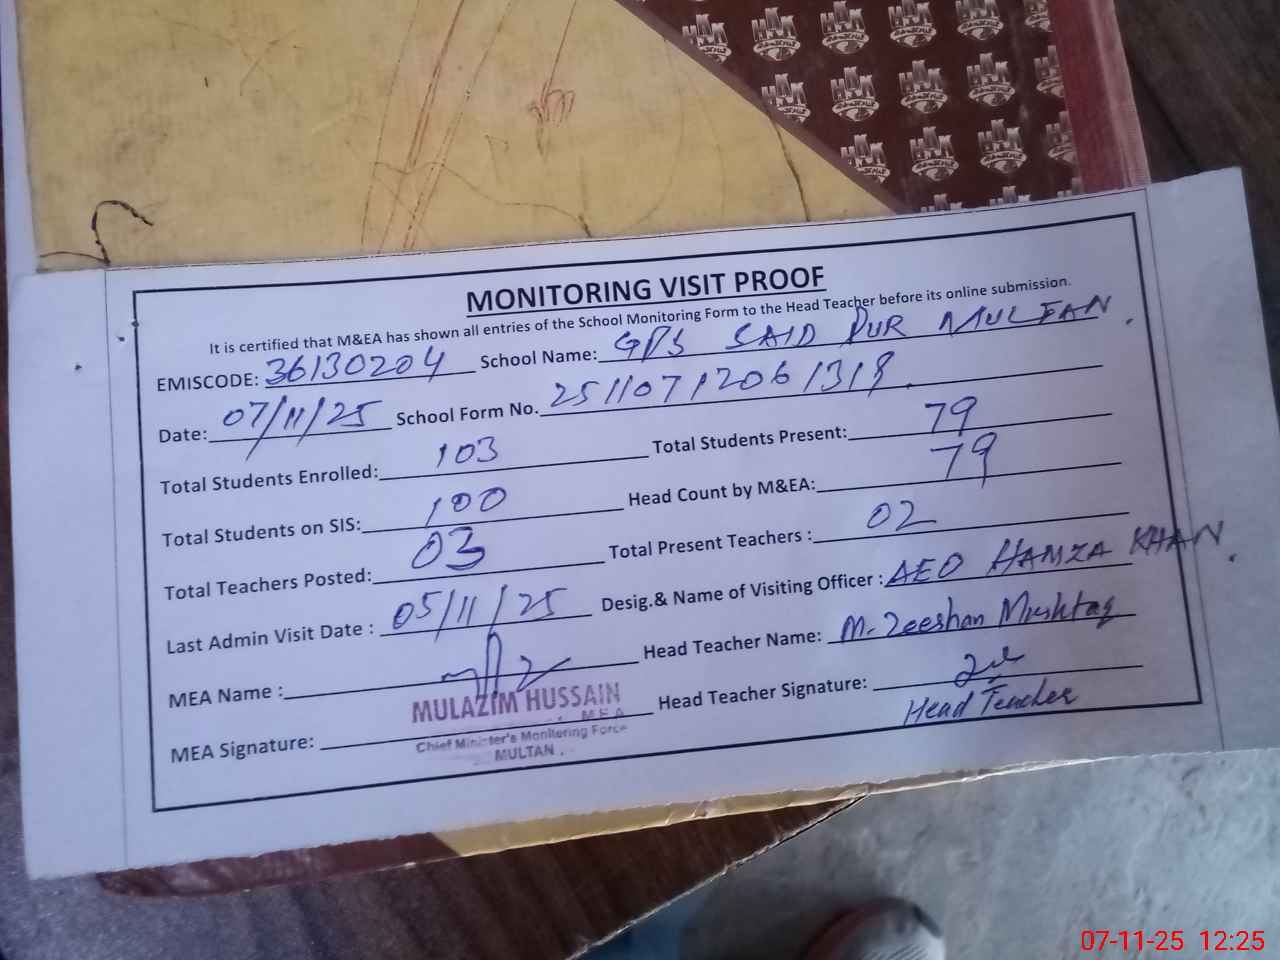 MONITORING VISIT PROOF
It is certified that M&EA has shown all entries of the School Monitoring Form to the Head Teacher before its online submission.
EMISCODE: 36130204 School Name: GPS SAID PUR MULTAN.
Date: 07/11/25 School Form No. 25110712061318.
Total Students Enrolled: 103 Total Students Present: 79
Total Students on SIS: 100 Head Count by M&EA: 79
Total Teachers Posted: 03 Total Present Teachers : 02
Last Admin Visit Date : 05/11/25 Desig.& Name of Visiting Officer : AEO HAMZA KHAN.
MEA Name : Head Teacher Name: M. Zeeshan Mushtaq
MULAZIM HUSSAIN
MEA Signature: Head Teacher Signature:
MEA
Chief Minister's Monitoring Force
MULTAN
Head Teacher
HAK
07-11-25 12:25